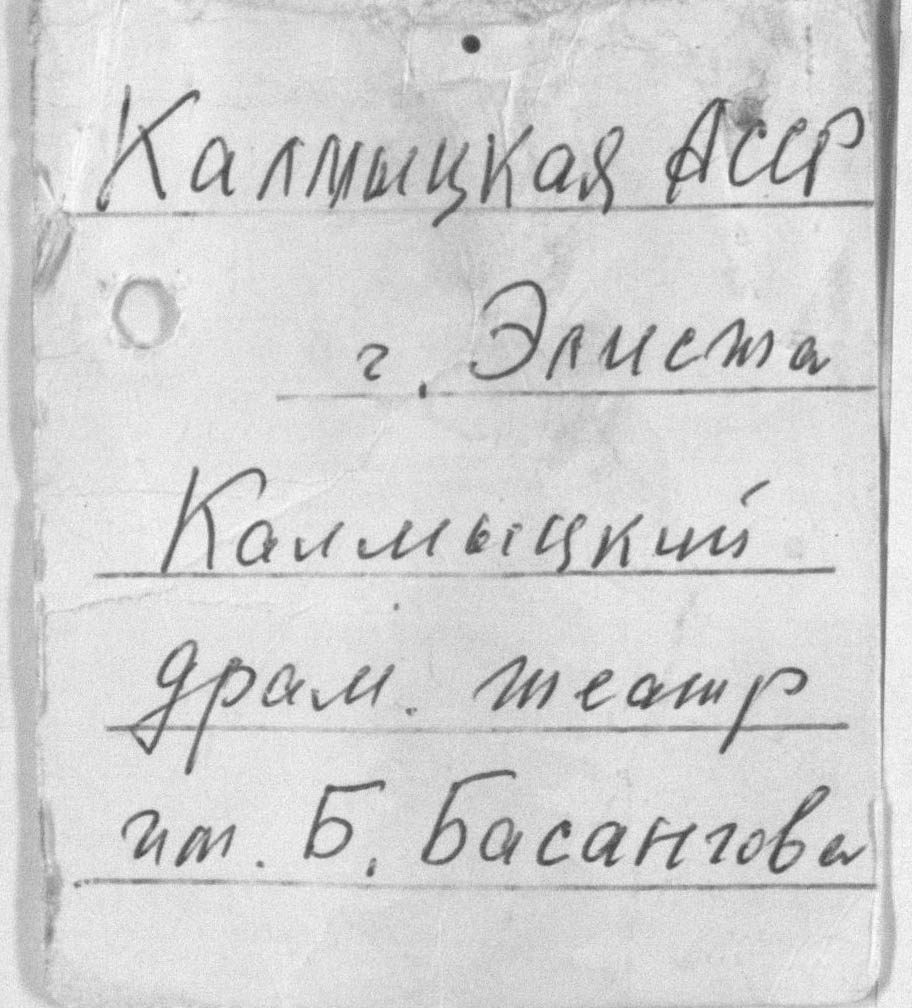 Калмыцкая АССР
г. Элиста
Калмыцкий
драм. театр
им. Б. Басангова